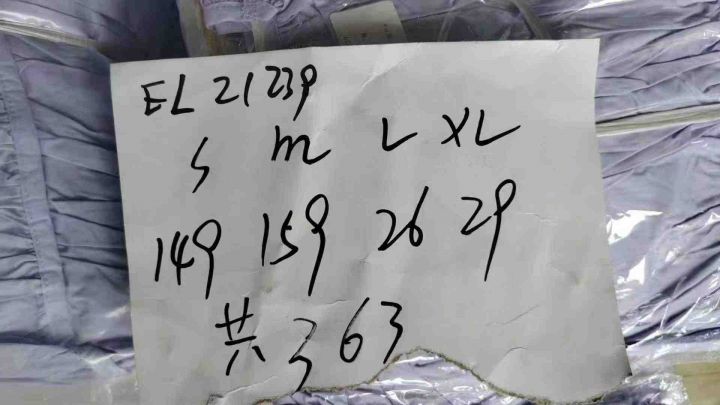 EL 21239
S M L XL
149 159 26 29
共363